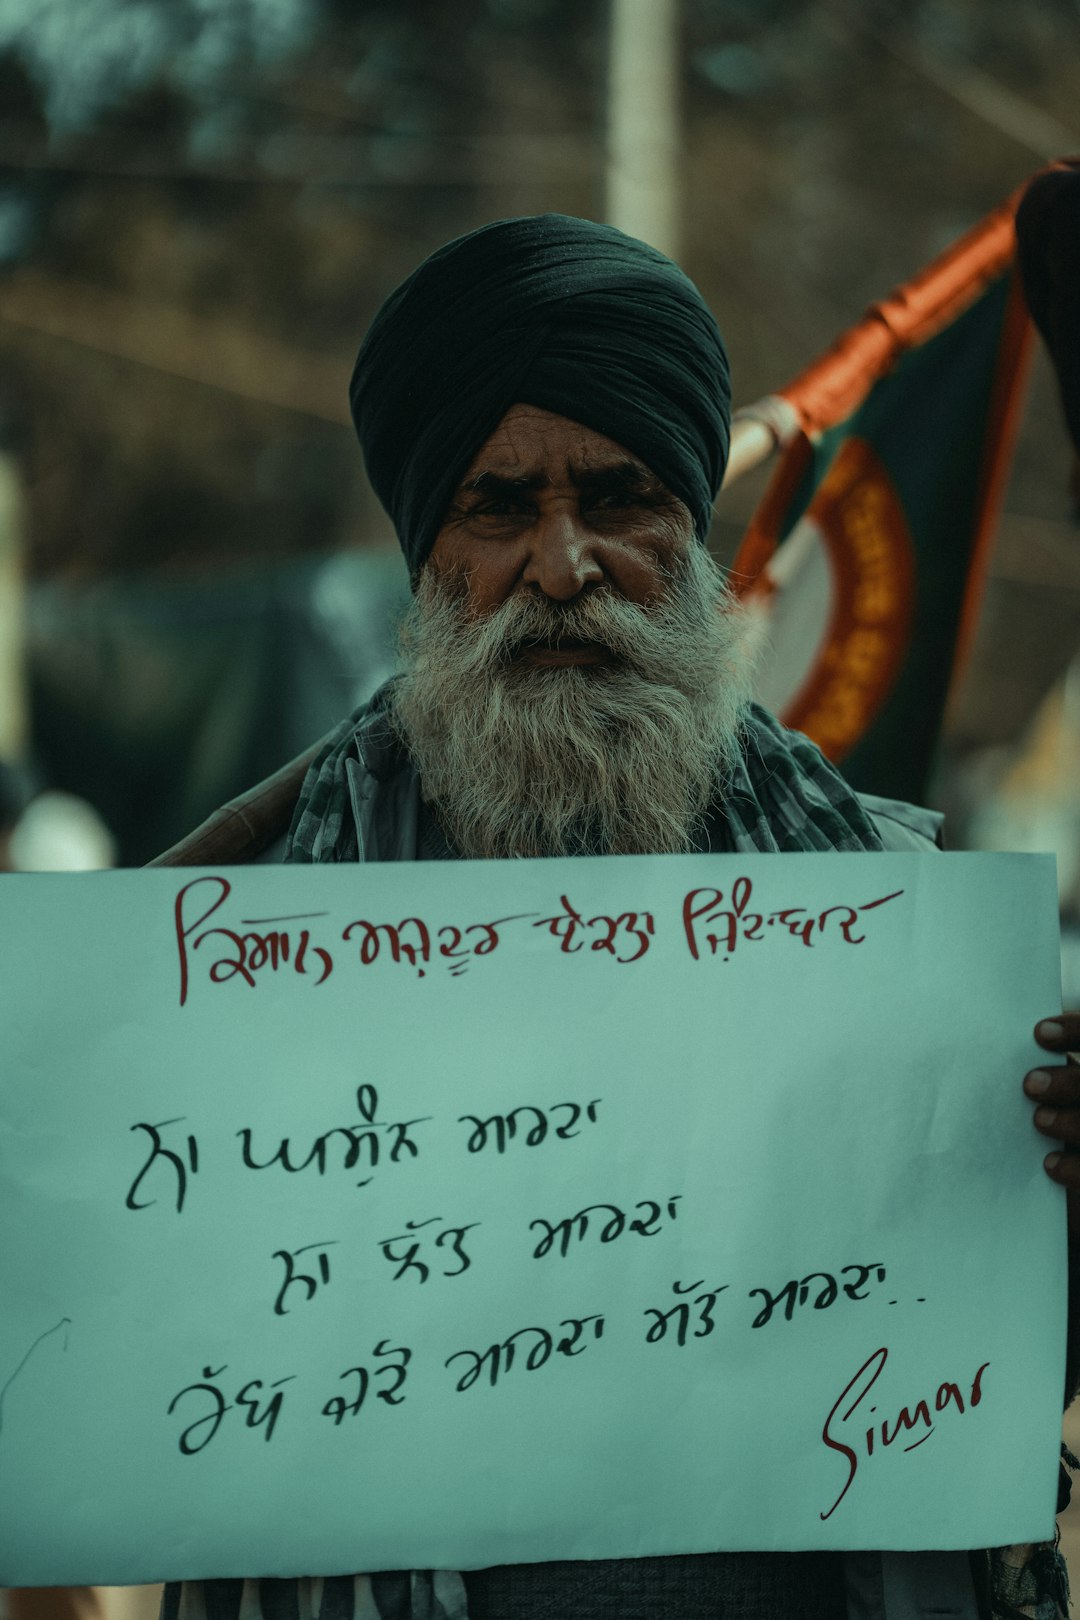 ਕਿਸਾਨ, ਮਜ਼ਦੂਰ ਏਕਤਾ ਜ਼ਿੰਦਾਬਾਦ
ਨਾ ਘਸੁੰਨ ਮਾਰਦਾ
ਨਾ ਲੱਤ ਮਾਰਦਾ
ਰੱਬ ਜਦੋਂ ਮਾਰਦਾ ਮੱਤ ਮਾਰਦਾ..
Simar